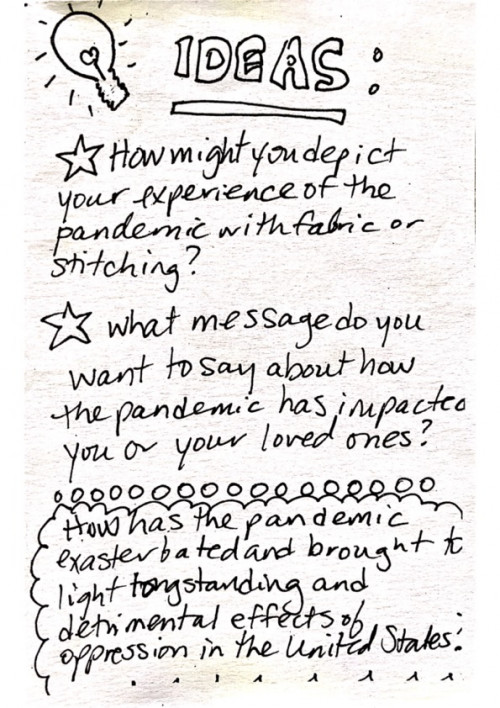 IDEAS:
How might you depict
your experience of the
pandemic with fabric or
stitching?
what message do you
want to say about how
the pandemic has impacted
you or your loved ones?
How has the pandemic
exasterbated and brought to
light longstanding and
detrimental effects of
oppression in the United States?